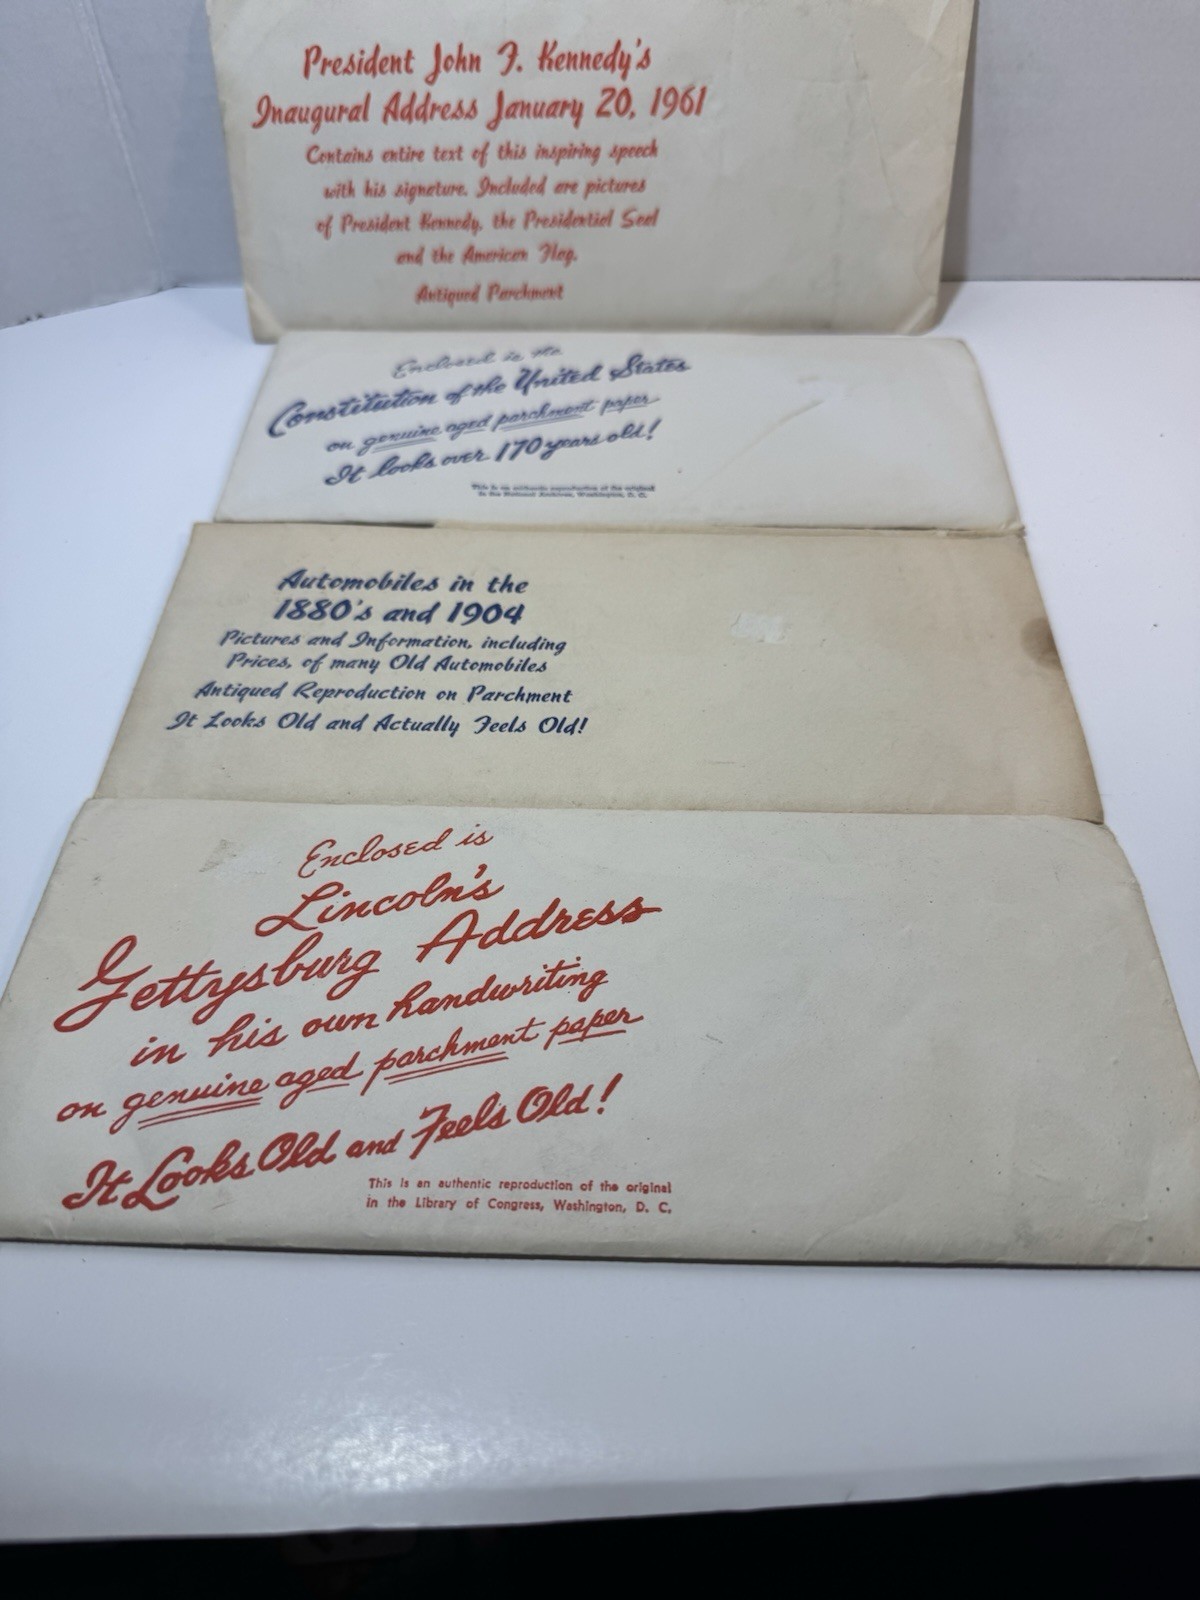 President John F. Kennedy's
Inaugural Address January 20, 1961
Contains entire text of this inspiring speech
with his signature. Included are pictures
of President Kennedy, the Presidential Seal
and the American Flag.
Antiqued Parchment
Enclosed is the
Constitution of the United States
on genuine aged parchment paper
It looks over 170 years old!
This is an authentic reproduction of the original
in the National Archives, Washington, D. C.
Automobiles in the
1880's and 1904
Pictures and Information, including
Prices, of many Old Automobiles
Antiqued Reproduction on Parchment
It Looks Old and Actually Feels Old!
Enclosed is
Lincoln's
Gettysburg Address
in his own handwriting
on genuine aged parchment paper
It Looks Old and Feels Old!
This is an authentic reproduction of the original
in the Library of Congress, Washington, D. C.